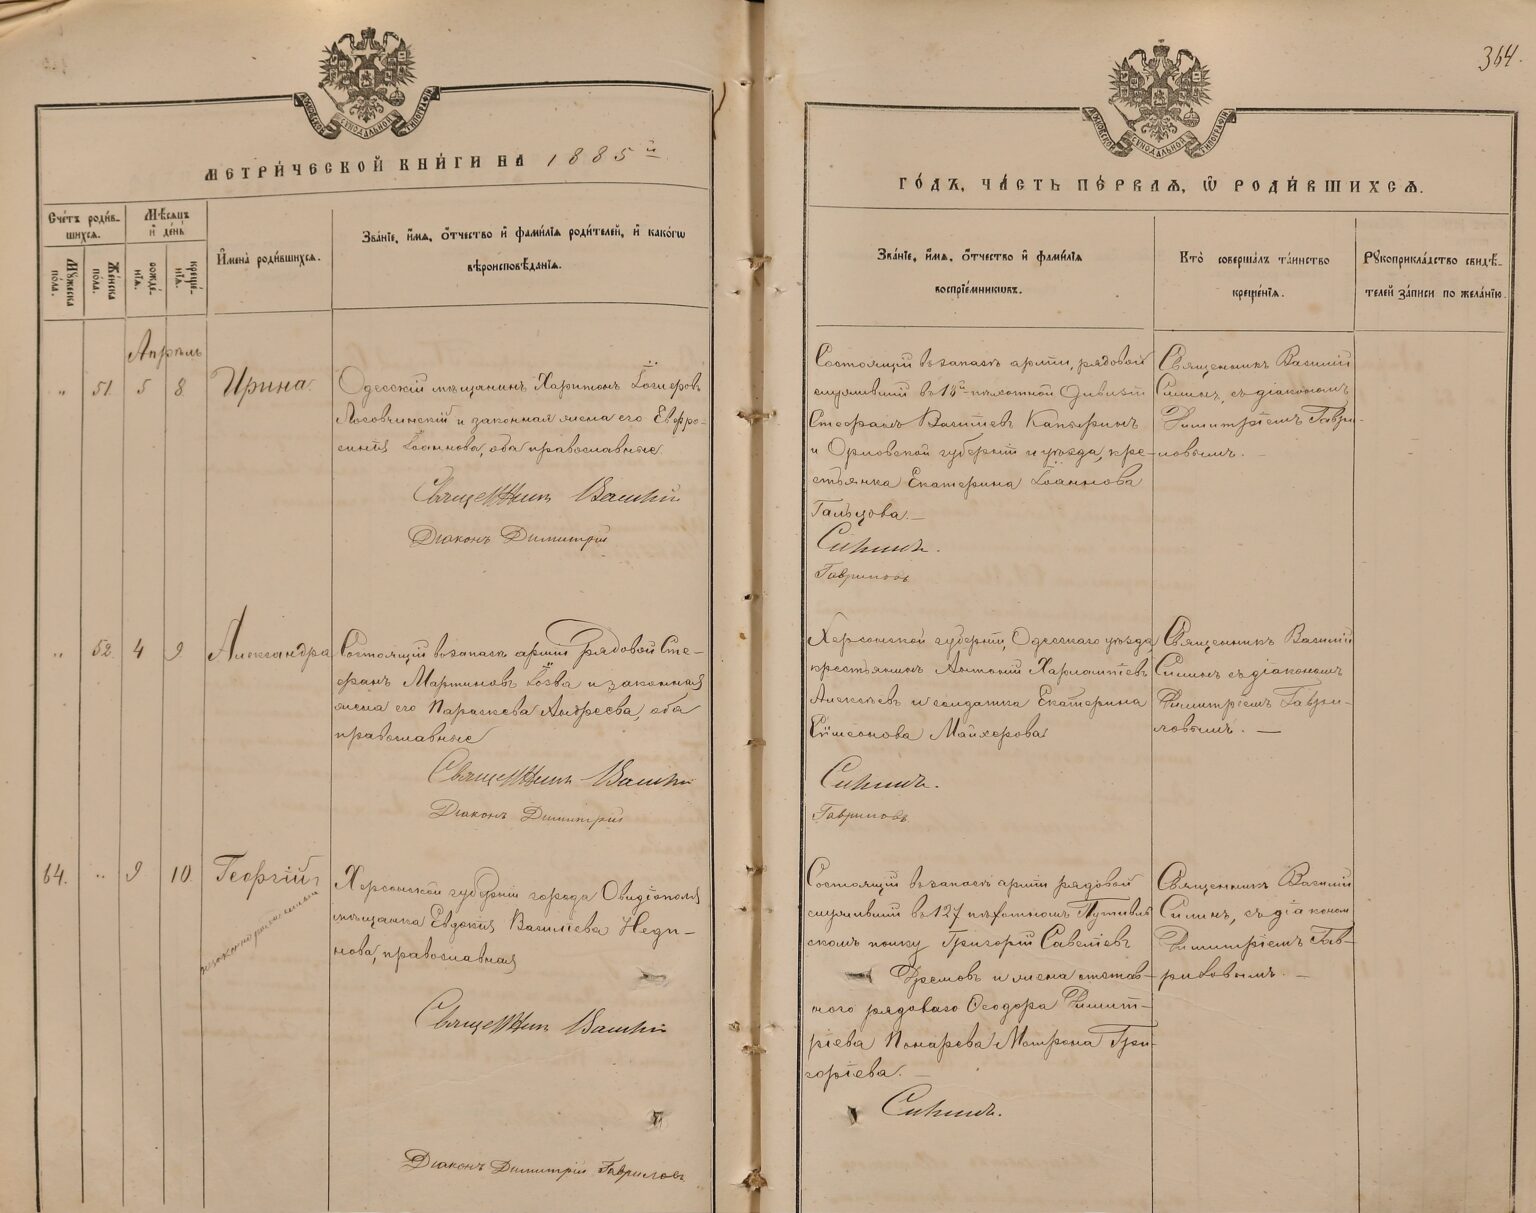 364.
МОСКОВСКОЙ СѴНОДАЛЬНОЙ ТИПОГРАФІИ
МОСКОВСКОЙ СѴНОДАЛЬНОЙ ТИПОГРАФІИ
МЕТРИ́ЧЕСКОЙ КНИ́ГИ НА 1885 й
ГО́ДЪ, ЧА́СТЬ ПЕ́РВАЯ, Ѡ РОДИ́ВШИХСЯ.
Сче́тъ роди́в-
шихся.
Му́жеска
по́ла.
Же́нска
по́ла.
Мѣ́сяцъ
и҆ де́нь
рожде́-
нїя.
креще́-
нїя.
И҆мена̀ роди́вшихся.
Зва́нїе, и҆́мя, ѻ҆́тчество и҆ фами́лїя роди́телей, и҆ како́гѡ
вѣроисповѣ́данїя.
Зва́нїе, и҆́мя, ѻ҆́тчество и҆ фами́лїя
воспрїе́мникѡвъ.
Кто̀ соверша́лъ та́инство
креще́нїя.
Рꙋкоприкла́дство свидѣ́-
телей за́писи по жела́нїю.
Апрѣль
" 51. 5 8. Ирина
Одесскій мѣщанинъ Харитонъ
Логовчинскій и законная жена его Евфро-
синія Іоаннова, оба православные
Священникъ Василій
Діаконъ Димитрій
Состоящій въ запасѣ арміи, рядовой
служившій въ 15й пѣхотной Дивизіи
Стефанъ Василіевъ
и Орловской губерніи и уѣзда, кре-
стьянка Екатерина Іоаннова
Гальцова.—
Силинъ.
Гавриловъ
Священникъ Василій
Силинъ, съ діакономъ
Димитріемъ Гаври-
ловымъ. —
" 52. 4 9 Александра
Состоящій въ запасѣ арміи рядовой Сте-
фанъ Мартиновъ и законная
жена его Параскева Андреева, оба
православные
Священникъ Василій
Діаконъ Димитрій
Херсонской губерніи, Одесскаго уѣзда,
крестьянинъ Антоній Харлампіевъ
Алексѣевъ и солдатка Екатерина
Сѵмеонова Майхерова
Силинъ.
Гавриловъ
Священникъ Василій
Силинъ съ діакономъ
Димитріемъ Гаври-
ловымъ. —
64. " 9 10. Георгій,
незаконнорожденный
Херсонской губерніи города Овидіополя
мѣщанка Евдокія Василіева Неди-
нова, православная
Священникъ Василій
Діаконъ Димитрій Гавриловъ
Состоящій въ запасѣ арміи рядовой
служившій въ 127 пѣхотномъ Путивль
скомъ полку Григорій Савеліевъ
Дремовъ и жена отстав-
ного рядоваго Ѳеодора Димит-
ріева Понарева Матрона Гри-
горіева. —
Силинъ.
Священникъ Василій
Силинъ, съ діакономъ
Димитріемъ Гав-
риловымъ. —